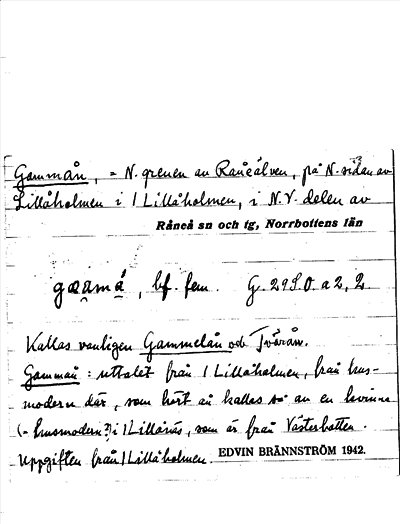 Gammån, = N. grenen av Råneälven, på N. sidan av
Lillåholmen i 1 Lillåholmen, i N.V. delen av
Råneå sn och tg, Norrbottens län
bf. fem. G. 29 S.O. a 2, 2
Kallas vanligen Gammelån och Tvärån.
Gammån : uttalet från 1 Lillåholmen, från hus-
modern där, som hört ån kallas så av en kvinna
(= husmodern?) i 1 Lillånäs, som är från Västerbotten.
Uppgiften från 1 Lillåholmen. EDVIN BRÄNNSTRÖM 1942.